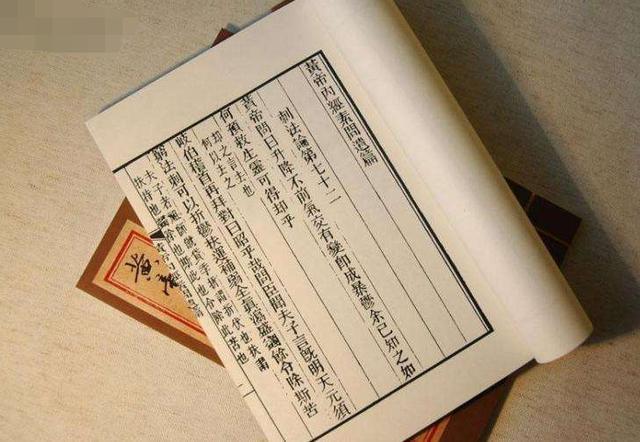 黃帝內經素問遺篇
刺法論第七十二
黃帝問曰升降不前氣交有變即成暴鬱余已知之如
何預救生靈可得却乎
岐伯稽首再拜對曰昭乎哉問臣聞夫子言既明天元須
窮法刺可以折鬱扶運補弱全真瀉盛蠲餘令除斯苦
夫子者祖師僦貸季也折謂折伏也扶謂
黃帝